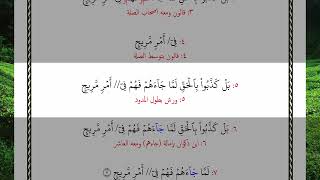 ٣: قالون ومعه أصحاب الصلة
٤: فِىٓ/ أَمْرٍ مَّرِيجٍ
٤: قالون بتوسط الصلة
٥: بَلْ كَذَّبُوا۟ بِٱلْحَقِّ لَمَّا جَآءَهُمْ فَهُمْ فِىٓ// أَمْرٍ مَّرِيجٍ
٥: ورش بطول المدود
٦: بَلْ كَذَّبُوا۟ بِٱلْحَقِّ لَمَّا جَآءَهُمْ فَهُمْ فِىٓ/ أَمْرٍ مَّرِيجٍ
٦: ابن ذكوان بإمالة (جاءهم) ومعه العاشر
٧: لَمَّا جَآءَهُمْ فَهُمْ فِىٓ// أَمْرٍ مَّرِيجٍ